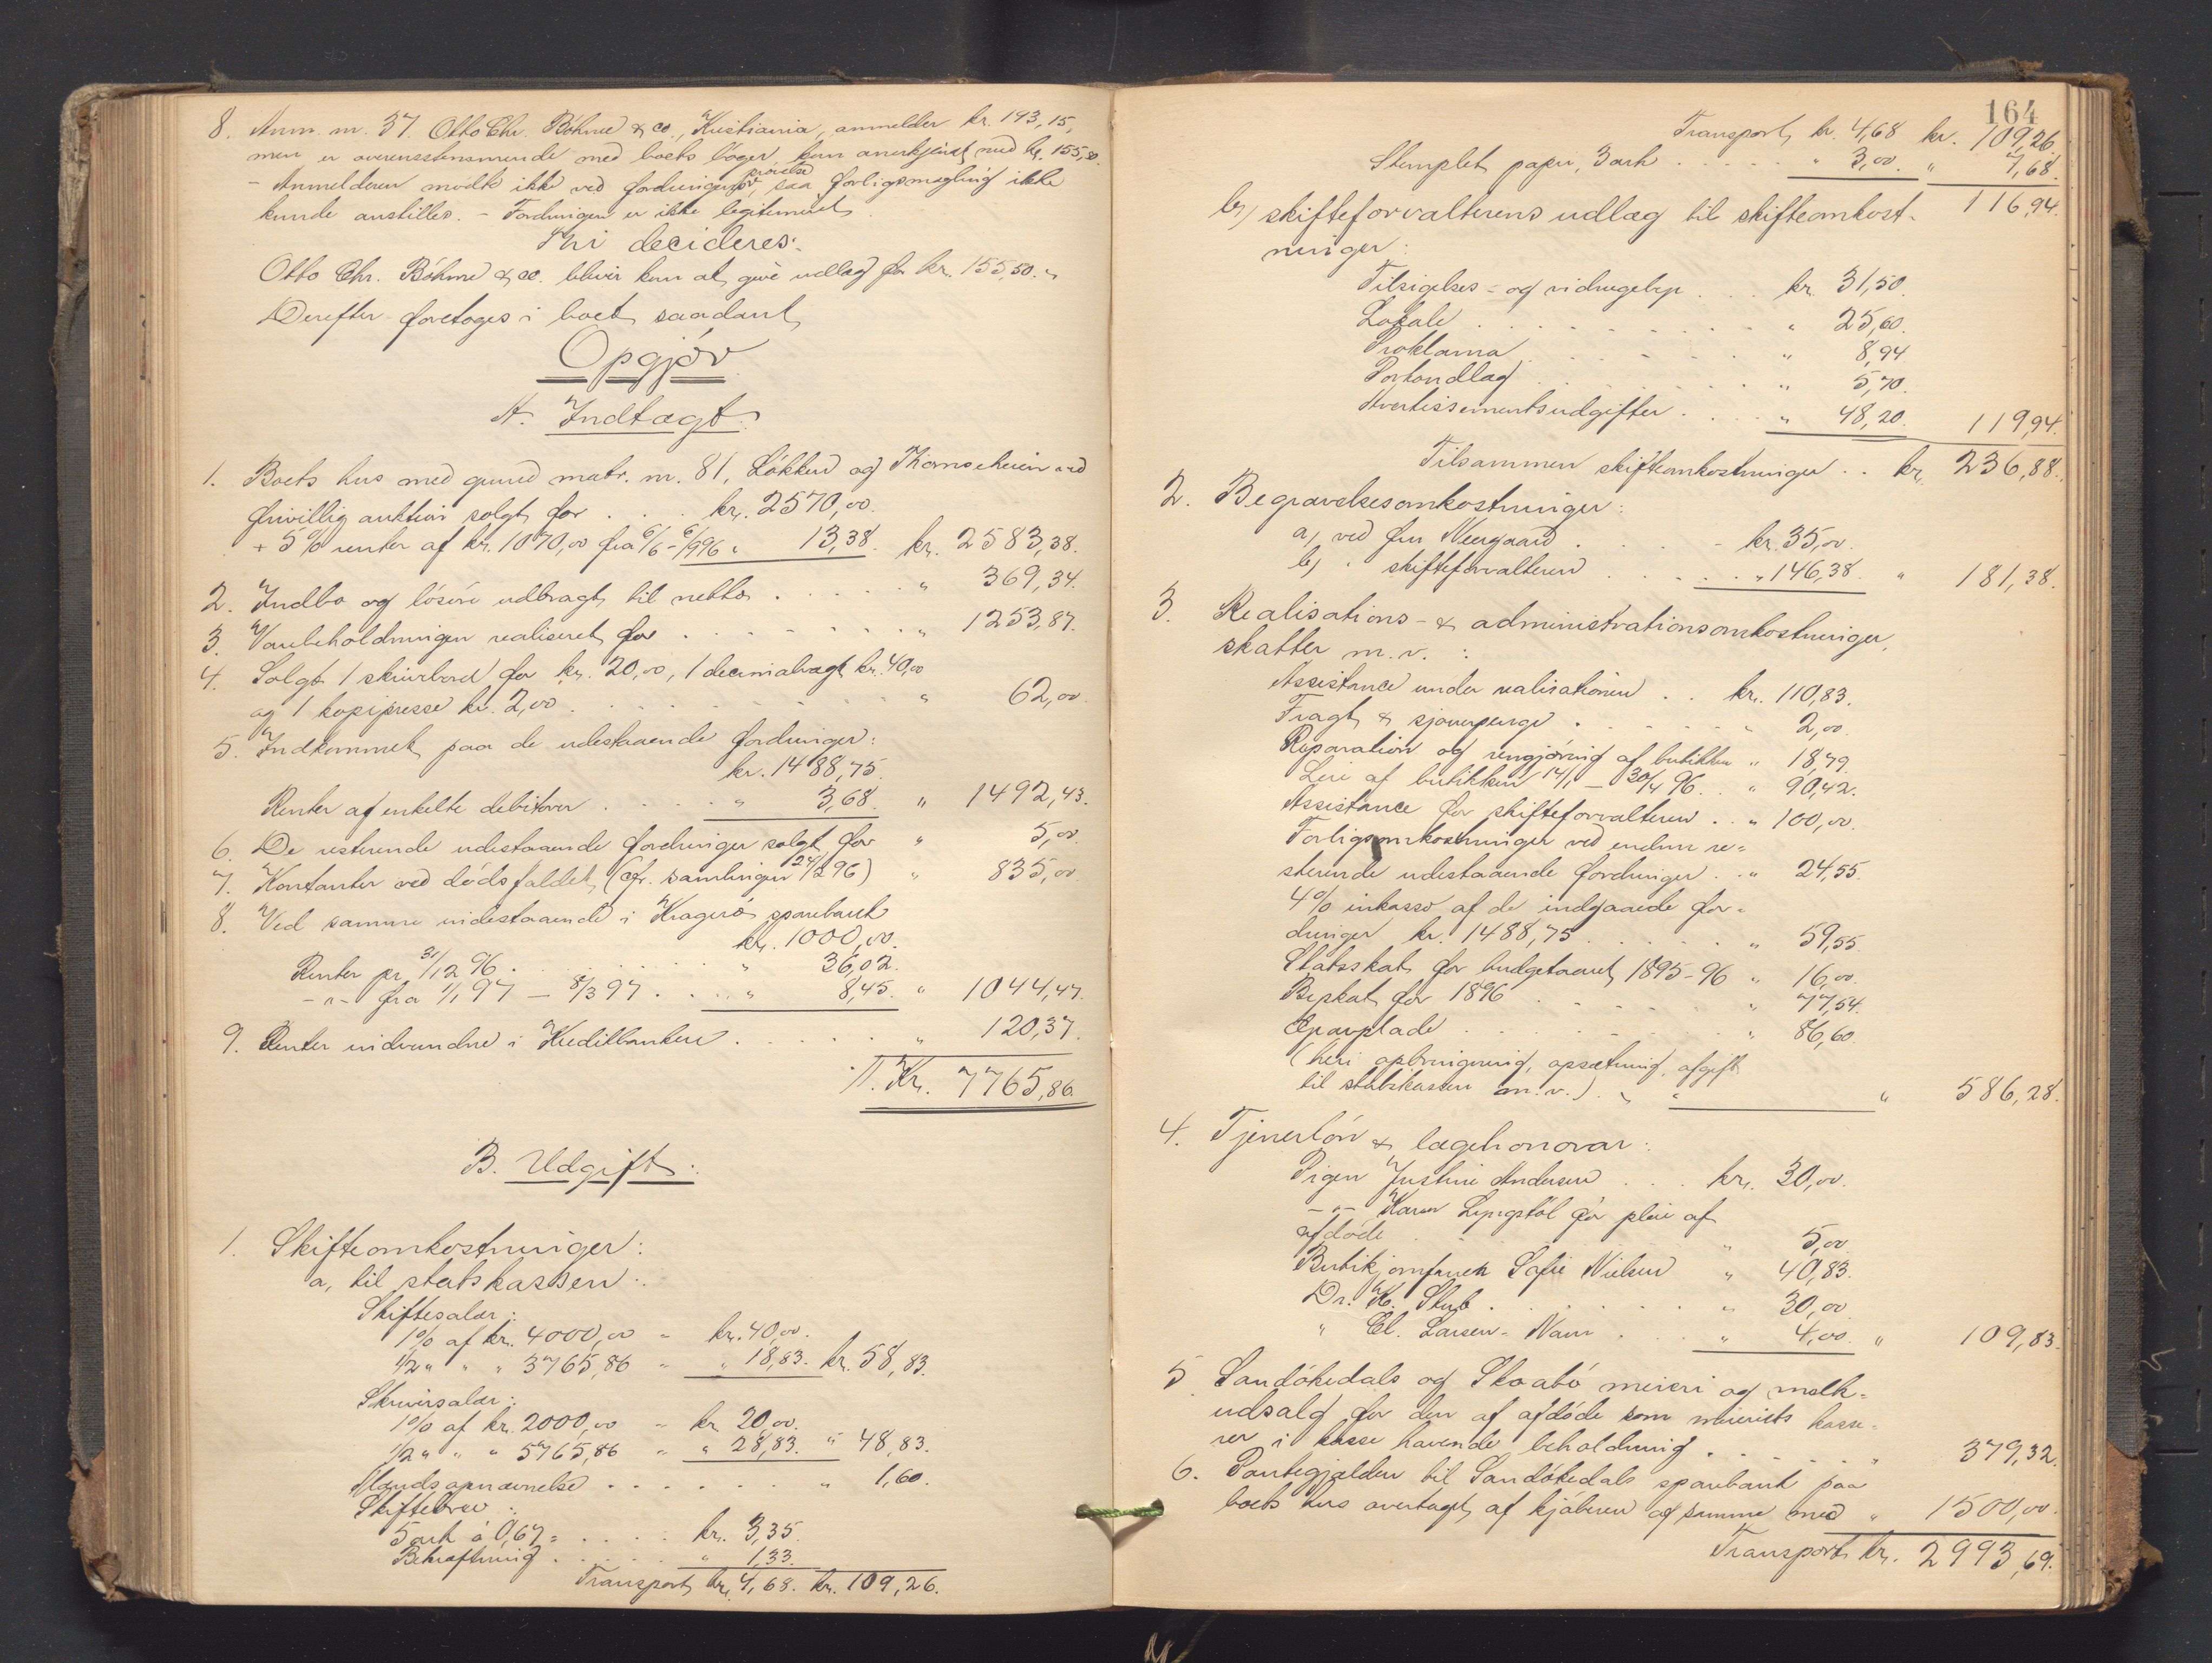 8. Anm. nr. 37. Otto Chr. Böhme & co., Kristiania, anmelder kr. 193,15,
men er overensstemmende med boets bøger kun anerkjendt med kr. 155,50.
prøvelse
- Anmelderen mødte ikke ved fordringernes, saa forligsmægling ikke
kunde anstilles. - Fordringen er ikke legitimeret
Thi decideres:
Otto Chr. Böhme & co. bliver kun at give udlæg for kr. 155,50. "
Derefter foretoges i boet saadant
Opgjør
A. Indtægt:
1. Boets hus med grund matr. nr. 81, Løkken og Thomseheien ved
frivillig auktion solgt for . . . kr. 2570,00.
+ 5% renter af kr. 1070,00 fra 6/6 - 6/9 96 " 13,38. kr. 2583,38.
2. Indbo og løsøre udbragt til netto . . . . . " 369,34.
3. Varebeholdningen realiseret for . . . . . . . " 1253,87.
4. Solgt 1 skrivebord for kr. 20,00, 1 decimalvægt kr. 40,00
og 1 kopipresse kr. 2,00 . . . . . . . " 62,00.
5. Indkommet paa de udestaaende fordringer:
kr. 1488,75.
Renter af enkelte debitorer . . . . " 3,68. " 1492,43.
6. De resterende udestaaende fordringer solgt for " 5,00.
7. Kontanter ved dødsfaldet (cfr. samlingen 24/2 96) " 835,00.
8. Ved samme indestaaende i Kragerø sparebank
kr. 1000,00.
Renter pr. 31/12 96 . . . . . . " 36,02.
- " - fra 1/1 97 - 8/3 97 . . . " 8,45. " 1044,47.
9. Renter indvundne i Kreditbanken . . . . . " 120,37.
T. Kr. 7765,86.
B. Udgift:
1. Skifteomkostninger:
a, til statskassen:
Skiftesalær:
1% af kr. 4000,00 = kr. 40,00.
1/2 " " " 3765,86 = " 18,83. kr. 58,83.
Skriversalær:
1% af kr. 2000,00 = kr. 20,00.
1/2 " " " 5765,86 = " 28,83. " 48,83.
Mandsopnævnelse . . . . . . " 1,60.
Skiftebrev:
5 ark à 0,67 = . . . . kr. 3,35.
Bekræftning . . . . . " 1,33.
Transport kr. 4,68. kr. 109,26.
164
Transport kr. 4,68 kr. 109,26.
Stemplet papir, 3 ark . . . . . " 3,00. " 7,68.
116,94.
b, skifteforvalterens udlæg til skifteomkost-
ninger:
Tilsigelses- og vidnegebyr . . . kr. 31,50.
Lokale . . . . . . . . . " 25,60.
Proklama . . . . . . . " 8,94.
Portoudlæg . . . . . . . " 5,70.
Avertissementsudgifter . . . . " 48,20. 119,94.
Tilsammen skifteomkostninger . . kr. 236,88.
2. Begravelsesomkostninger:
a, ved fru Neergaard . . . . - kr. 35,00.
b, " skifteforvalteren . . . . . " 146,38. " 181,38.
3. Realisations- & administrationsomkostninger,
skatter m. v. :
Assistance under realisationen . . kr. 110,83.
Fragt & sjouerpenge . . . . . " 2,00.
Reparation og rengjøring af butikken " 18,79.
Leie af butikken 14/1 - 30/4 96 . . " 90,42.
Assistance for skifteforvalteren . . " 100,00.
Forligsomkostninger ved endnu re-
sterende udestaaende fordringer . . " 24,55.
4% inkasso af de indgaaede for-
dringer kr. 1488,75 . . . . . . " 59,55.
Statsskat for budgetaaret 1895-96 " 16,00.
Byskat for 1896 . . . . . . . " 77,54.
Gravplade . . . . . . . . . " 86,60.
(heri opbringning, opsætning, afgift
til statskassen m. v.) . " " 586,28.
4. Tjenerløn & lægehonorar:
Pigen Justine Andersen . . . kr. 30,00.
- " - Karen Lyngstøl for pleie af
afdøde . . . . . . . . . " 5,00.
Butikjomfruen Sofie Nielsen " 40,83.
Dr. K. Stub . . . . . . . " 30,00.
" El. Larsen-Naur . . . " 4,00. " 109,83.
5. Sandøkedals og Skaatø meieri og melk-
udsalg for den af afdøde som meieriets kasse-
rer i kasse havende beholdning . . . . " 379,32.
6. Pantegjælden til Sandøkedals sparebank paa
boets hus overtaget af kjøberen af samme med " 1500,00.
Transport kr. 2993,69.